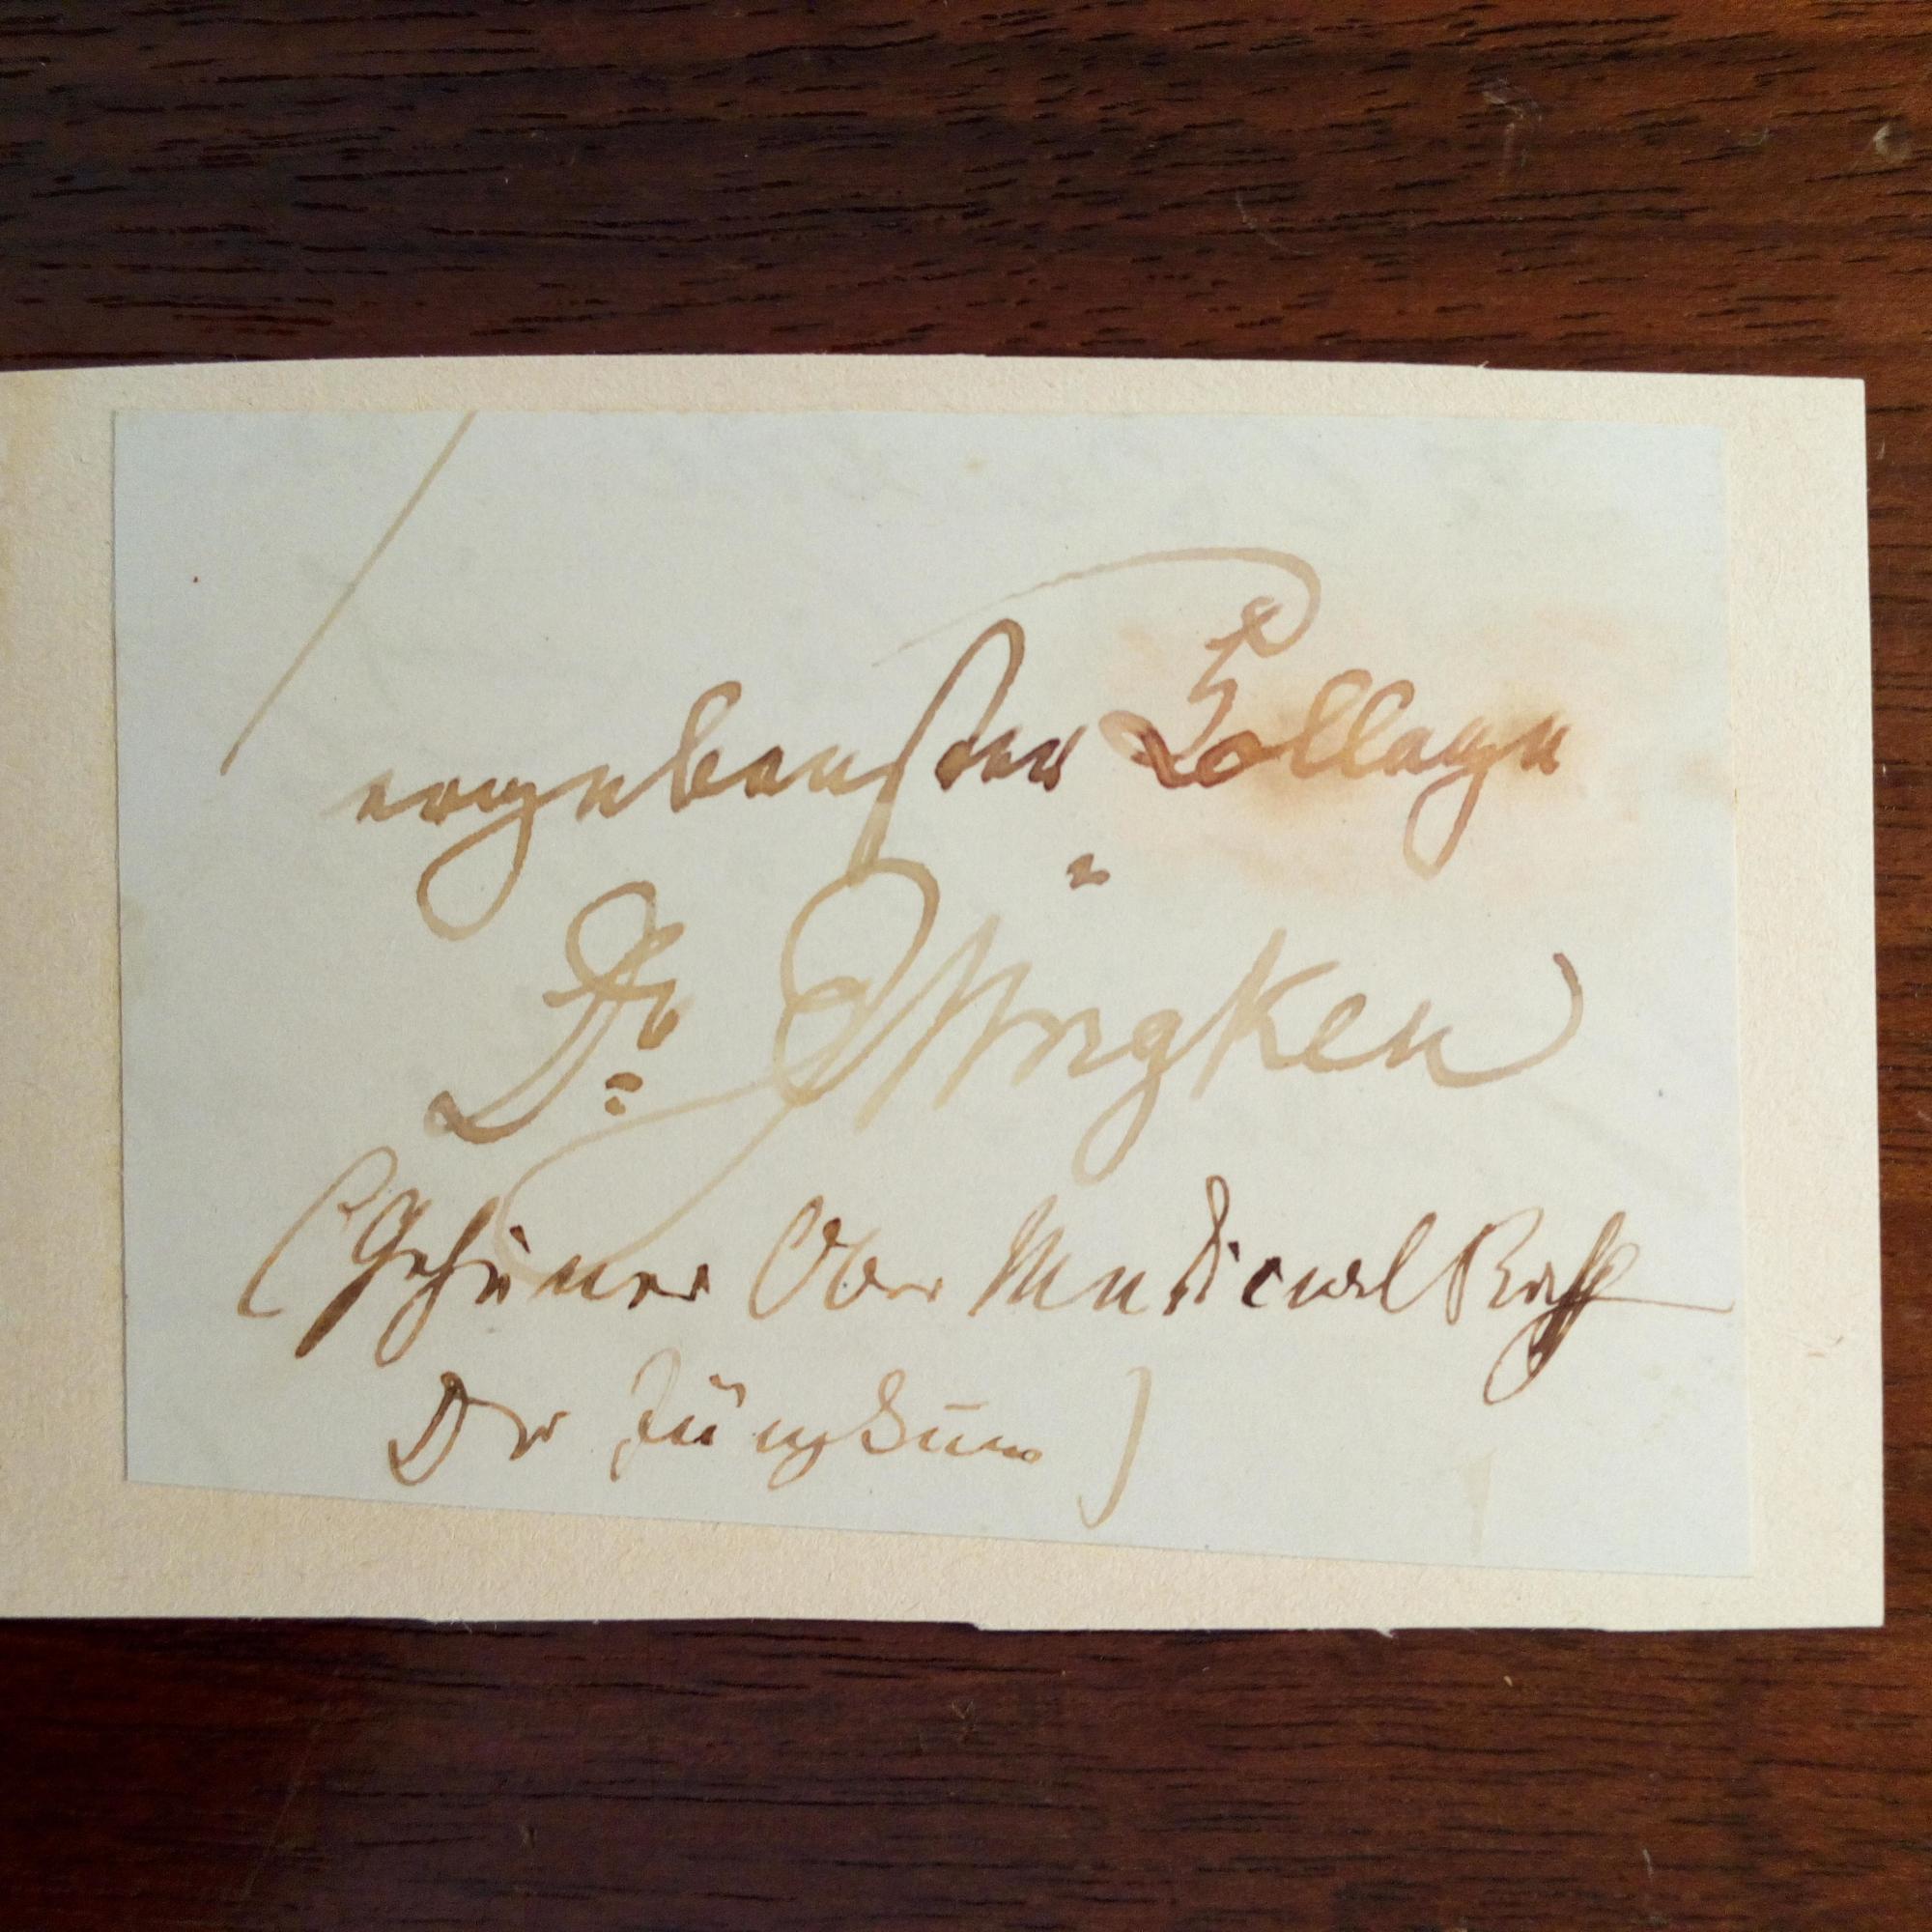 ergebenster College
Dr. Jüngken
(Geheimer Ober Medicinal Rath
Dr Jüngken)